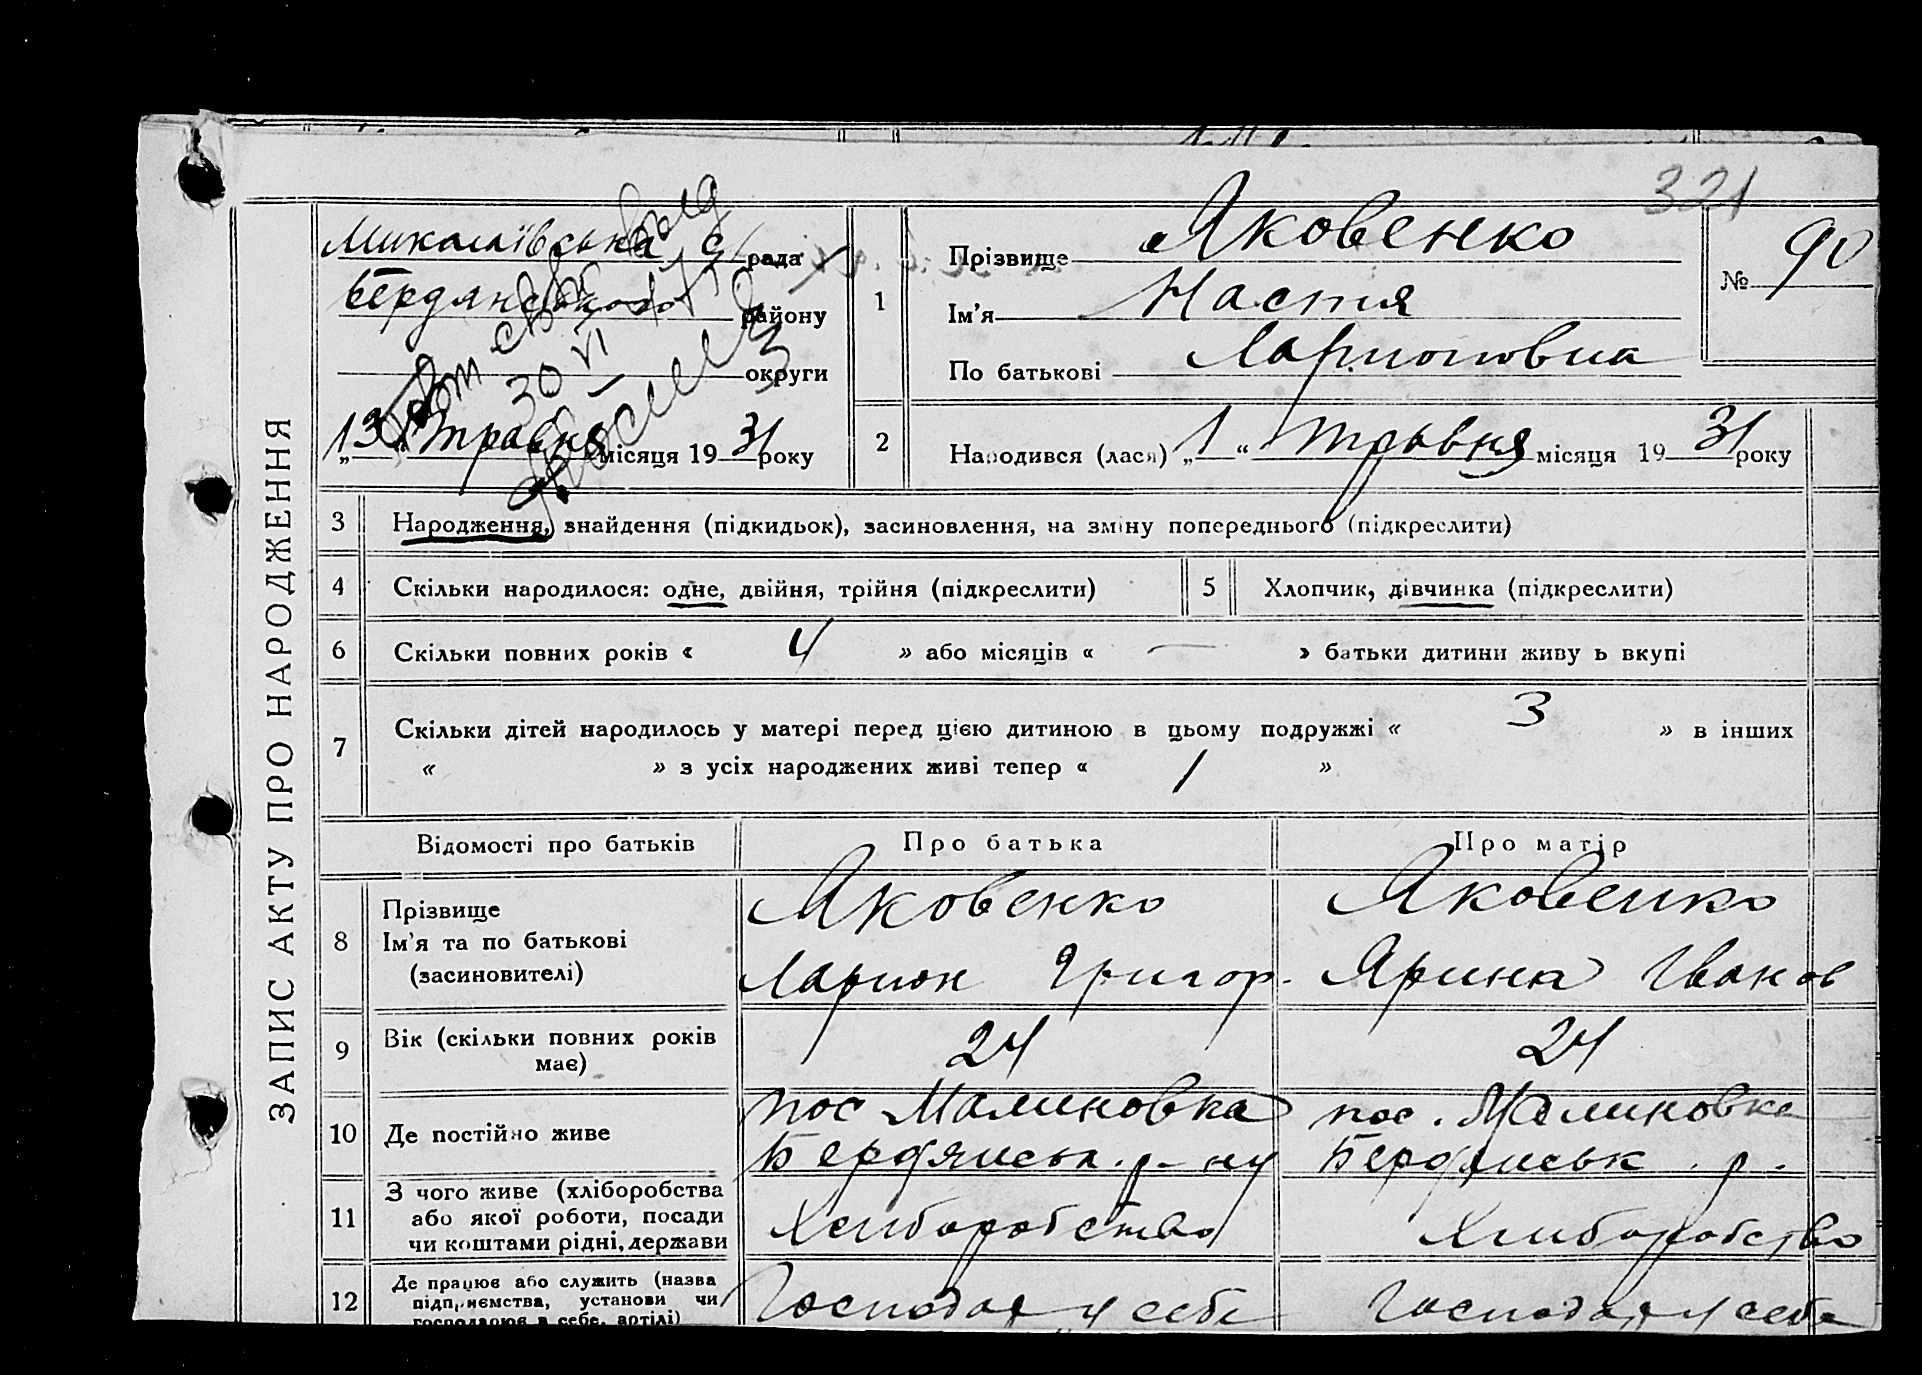 321
ЗАПИС АКТУ ПРО НАРОДЖЕННЯ
Миколаївська с/рада
Бердянського району
округи
„13“ травня місяця 1931 року
30 VI
1
Прізвище Яковенко
Ім'я Настя
По батькові Ларионовна
№ 90
2
Народився (лася) „1“ травня місяця 1931 року
3 Народження, знайдення (підкидьок), засиновлення, на зміну попереднього (підкреслити)
4 Скільки народилося: одне, двійня, трійня (підкреслити)
5 Хлопчик, дівчинка (підкреслити)
6 Скільки повних років « 4 » або місяців « — » батьки дитини живу ь вкупі
7 Скільки дітей народилось у матері перед цією дитиною в цьому подружжі « 3 » в інших
« » з усіх народжених живі тепер « 1 »
Відомості про батьків Про батька Про матір
8 Прізвище
Ім'я та по батькові
(засиновителі)
Яковенко
Ларион Григор.
Яковенко
Ярина Іванов
9 Вік (скільки повних років
має)
24
24
10 Де постійно живе
пос Малиновка
Бердянськ. р-ну
пос. Малиновка
Бердянськ. р.
11 З чого живе (хліборобства
або якої роботи, посади
чи коштами рідні, держави
Хлиборобство
Хлиборобство
12 Де працює або служить (назва
підприємства, установи чи
господарює в себе, артілі)
Господар у себе
Господар у себе